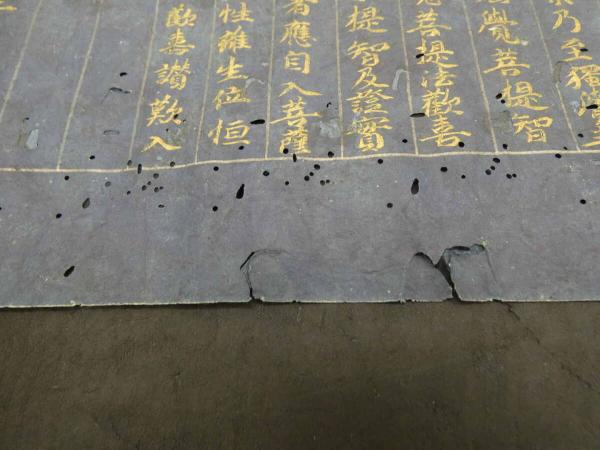 乃至獨覺
覺菩提智
菩提法歡喜
提智及證實
者應自入菩薩
性離生位恒
歡喜讚歎入